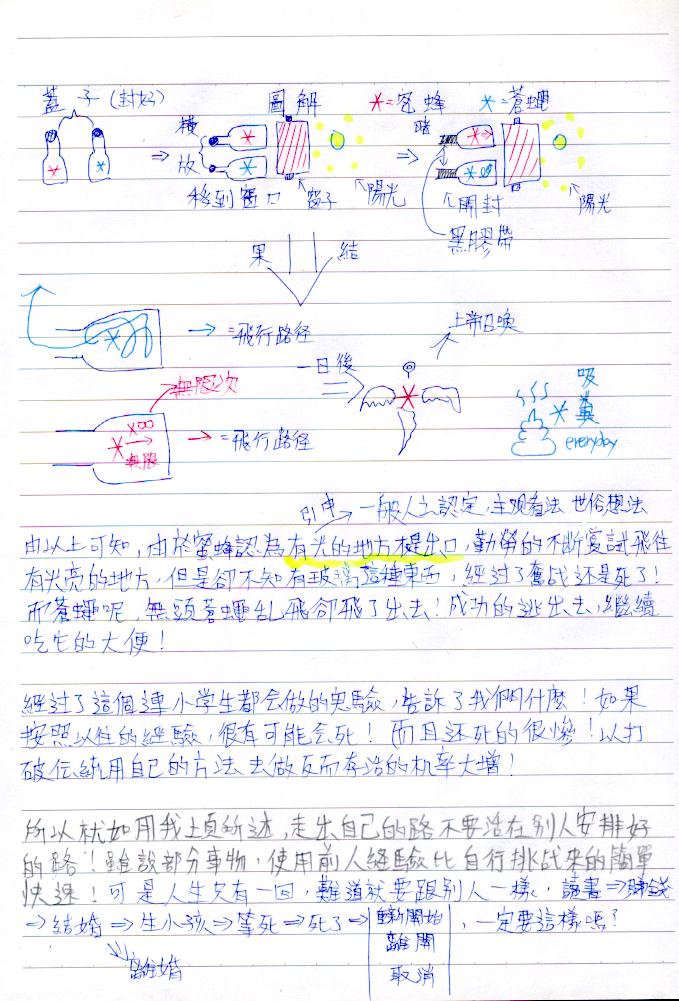 蓋子(封好)
圖解
*=蜜蜂
*=蒼蠅
橫放
移到窗口
窗子
陽光
暗
開封
黑膠帶
陽光
結果
=飛行路径
無限次
8x
無限
=飛行路径
一日後
上帝召喚
吸糞
everyday
引申
一般人之認定,主观看法 世俗想法
由以上可知,由於蜜蜂認為有光的地方才是出口,勤勞的不断嘗試飛往
有光亮的地方,但是卻不知有玻璃這種東西,經过了奮战还是死了!
而蒼蠅呢,無頭蒼蠅乱飛卻飛了出去!成功的逃出去,繼續
吃它的大便!
經过了這個連小学生都会做的实驗,告訴了我們什麼!如果
按照以往的經驗,很有可能会死!而且还死的很慘!以打
破伝統用自己的方法去做反而存活的机率大增!
所以就如用我上頁所述,走出自己的路不要活在別人安排好
的路!雖說部分事物,使用前人經驗比自行挑战來的簡單
快速!可是人生只有一回,難道就要跟別人一樣,讀書⇒賺錢
⇒結婚⇒生小孩⇒等死⇒死了⇒
重新開始
離開
取消
,一定要這樣嗎?
離婚